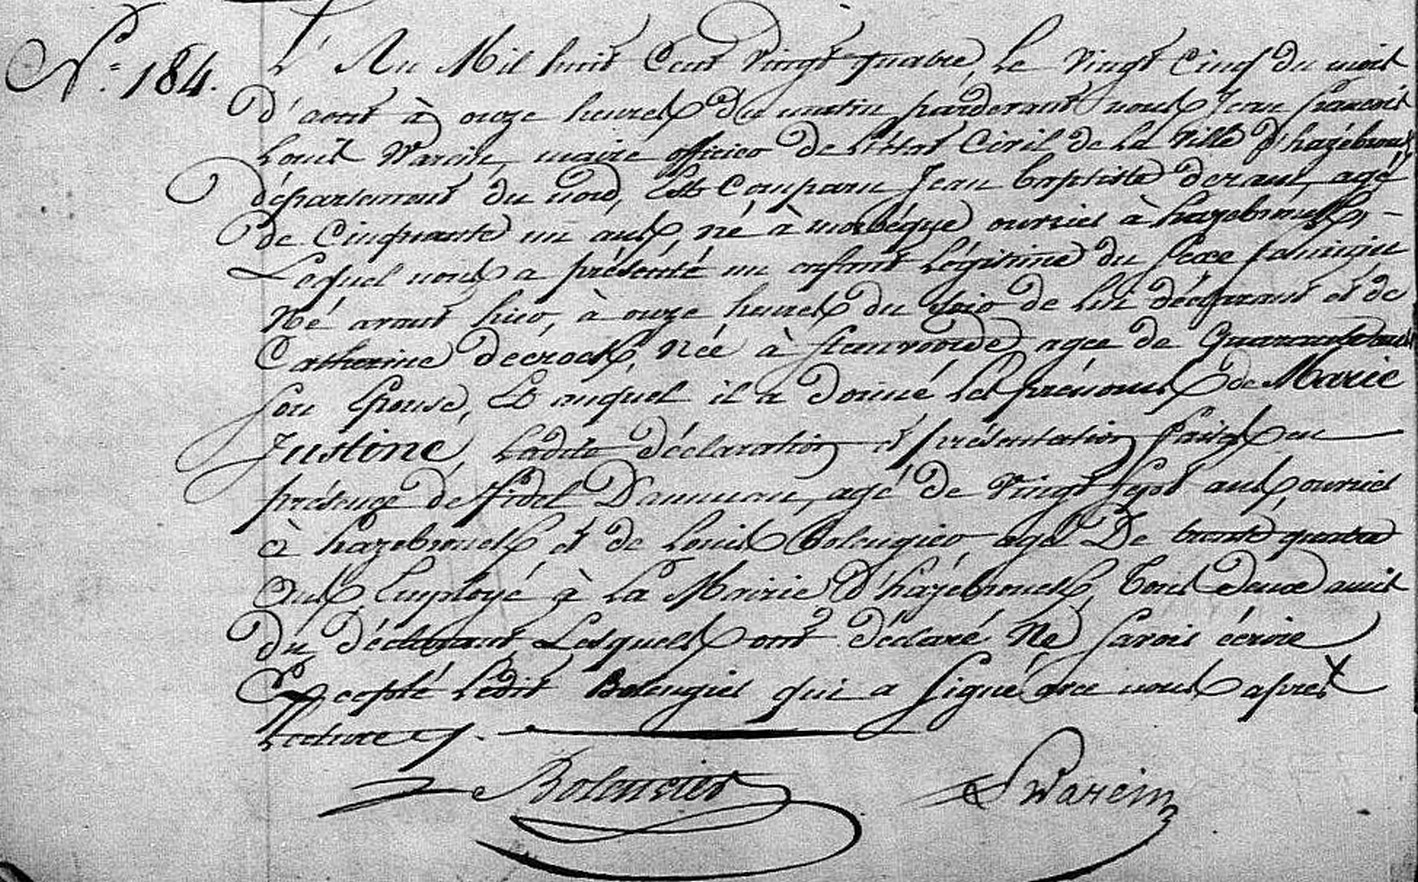 N.° 184. L'An Mil huit Cent Vingt quatre, le Vingt Cinq du mois
D'aout à onze heures du matin pardevant nous Jean francois
Louis Warein, maire officier de l'état Civil de la Ville d'hazebrouck
département du nord, Est Comparu Jean baptiste agé
de Cinquante un ans, né à morbéque ouvrier à hazebrouck,
Lequel nous a présenté un enfant légitime du Sexe feminin
Né avant hier, à onze heures du soir de lui déclarant et de
Catherine decrock, née à agee de
son Epouse, Et auquel il a donné les prénoms de Marie
Justine, Ladite déclaration et présentation faites en
présence de fidel agé de Vingt sept ans, ouvrier
à hazebrouck et de Louis Bolengier agé De trente quatre
ans Employé à La Mairie d'hazebrouck, tous deux amis
du déclarant, Lesquels ont déclaré Ne savoir écrire
Excepté ledit Bolengier qui a signé avec nous après
Lecture
Bolengier Warein